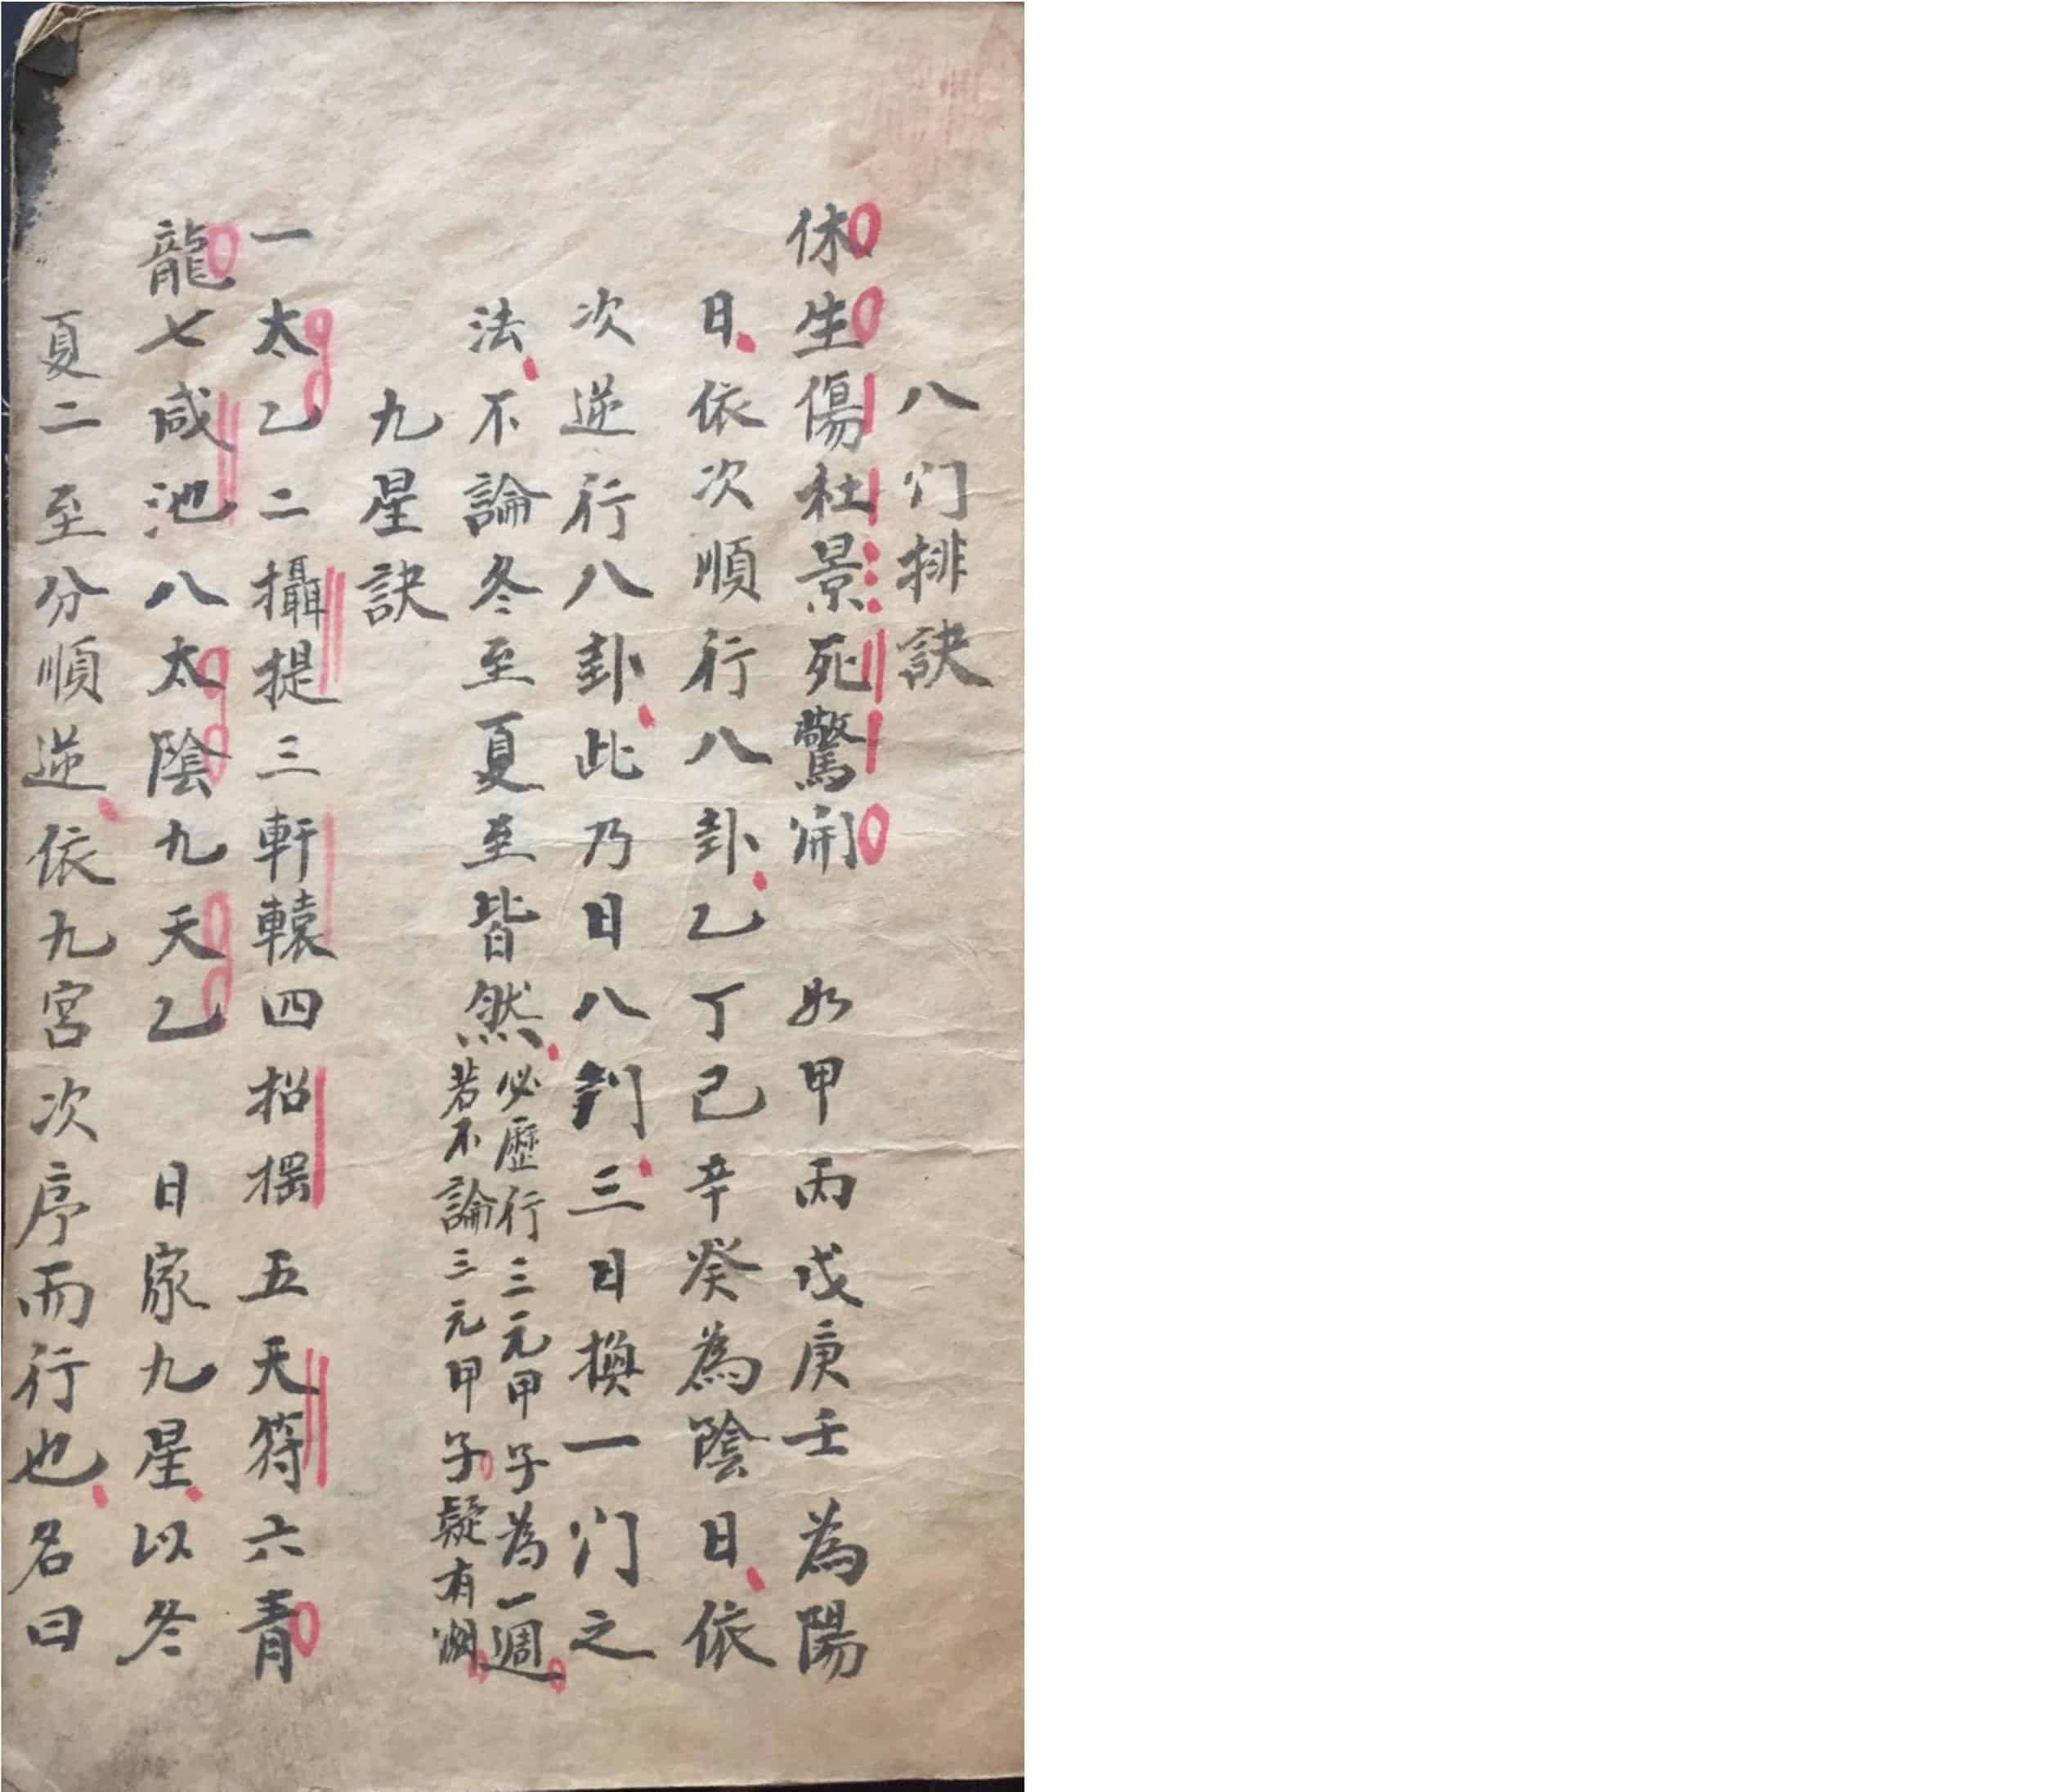 八门排訣
休生傷杜景死驚開　如甲丙戊庚壬為陽
日依次順行八卦乙丁己辛癸為陰日依
次逆行八卦此乃日八門三日換一门之
法不論冬至夏至皆然必歷行三元甲子為一週
若不論三元甲子疑有
九星訣
一太乙二攝提三軒轅四招摇五天符六青
龍七咸池八太陰九天乙　日家九星以冬
夏二至分順逆依九宮次序而行也名曰